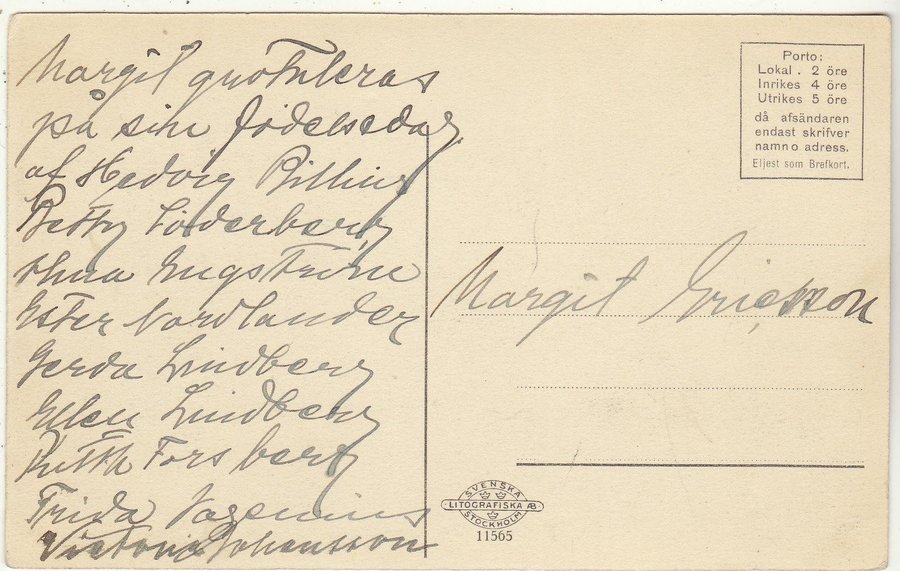 Margit gratuleras
på sin födelsedag
af Hedvig Billing
Betty Söderberg
Anna Engström
Ester Nordlander
Gerda Lindberg
Ellen Lindberg
Ruth Forsberg
Frida
Victoria Johansson
Porto:
Lokal . 2 öre
Inrikes 4 öre
Utrikes 5 öre
då afsändaren
endast skrifver
namn o adress.
Eljest som Brefkort.
Margit Ericsson
SVENSKA
LITOGRAFISKA AB
STOCKHOLM
11565